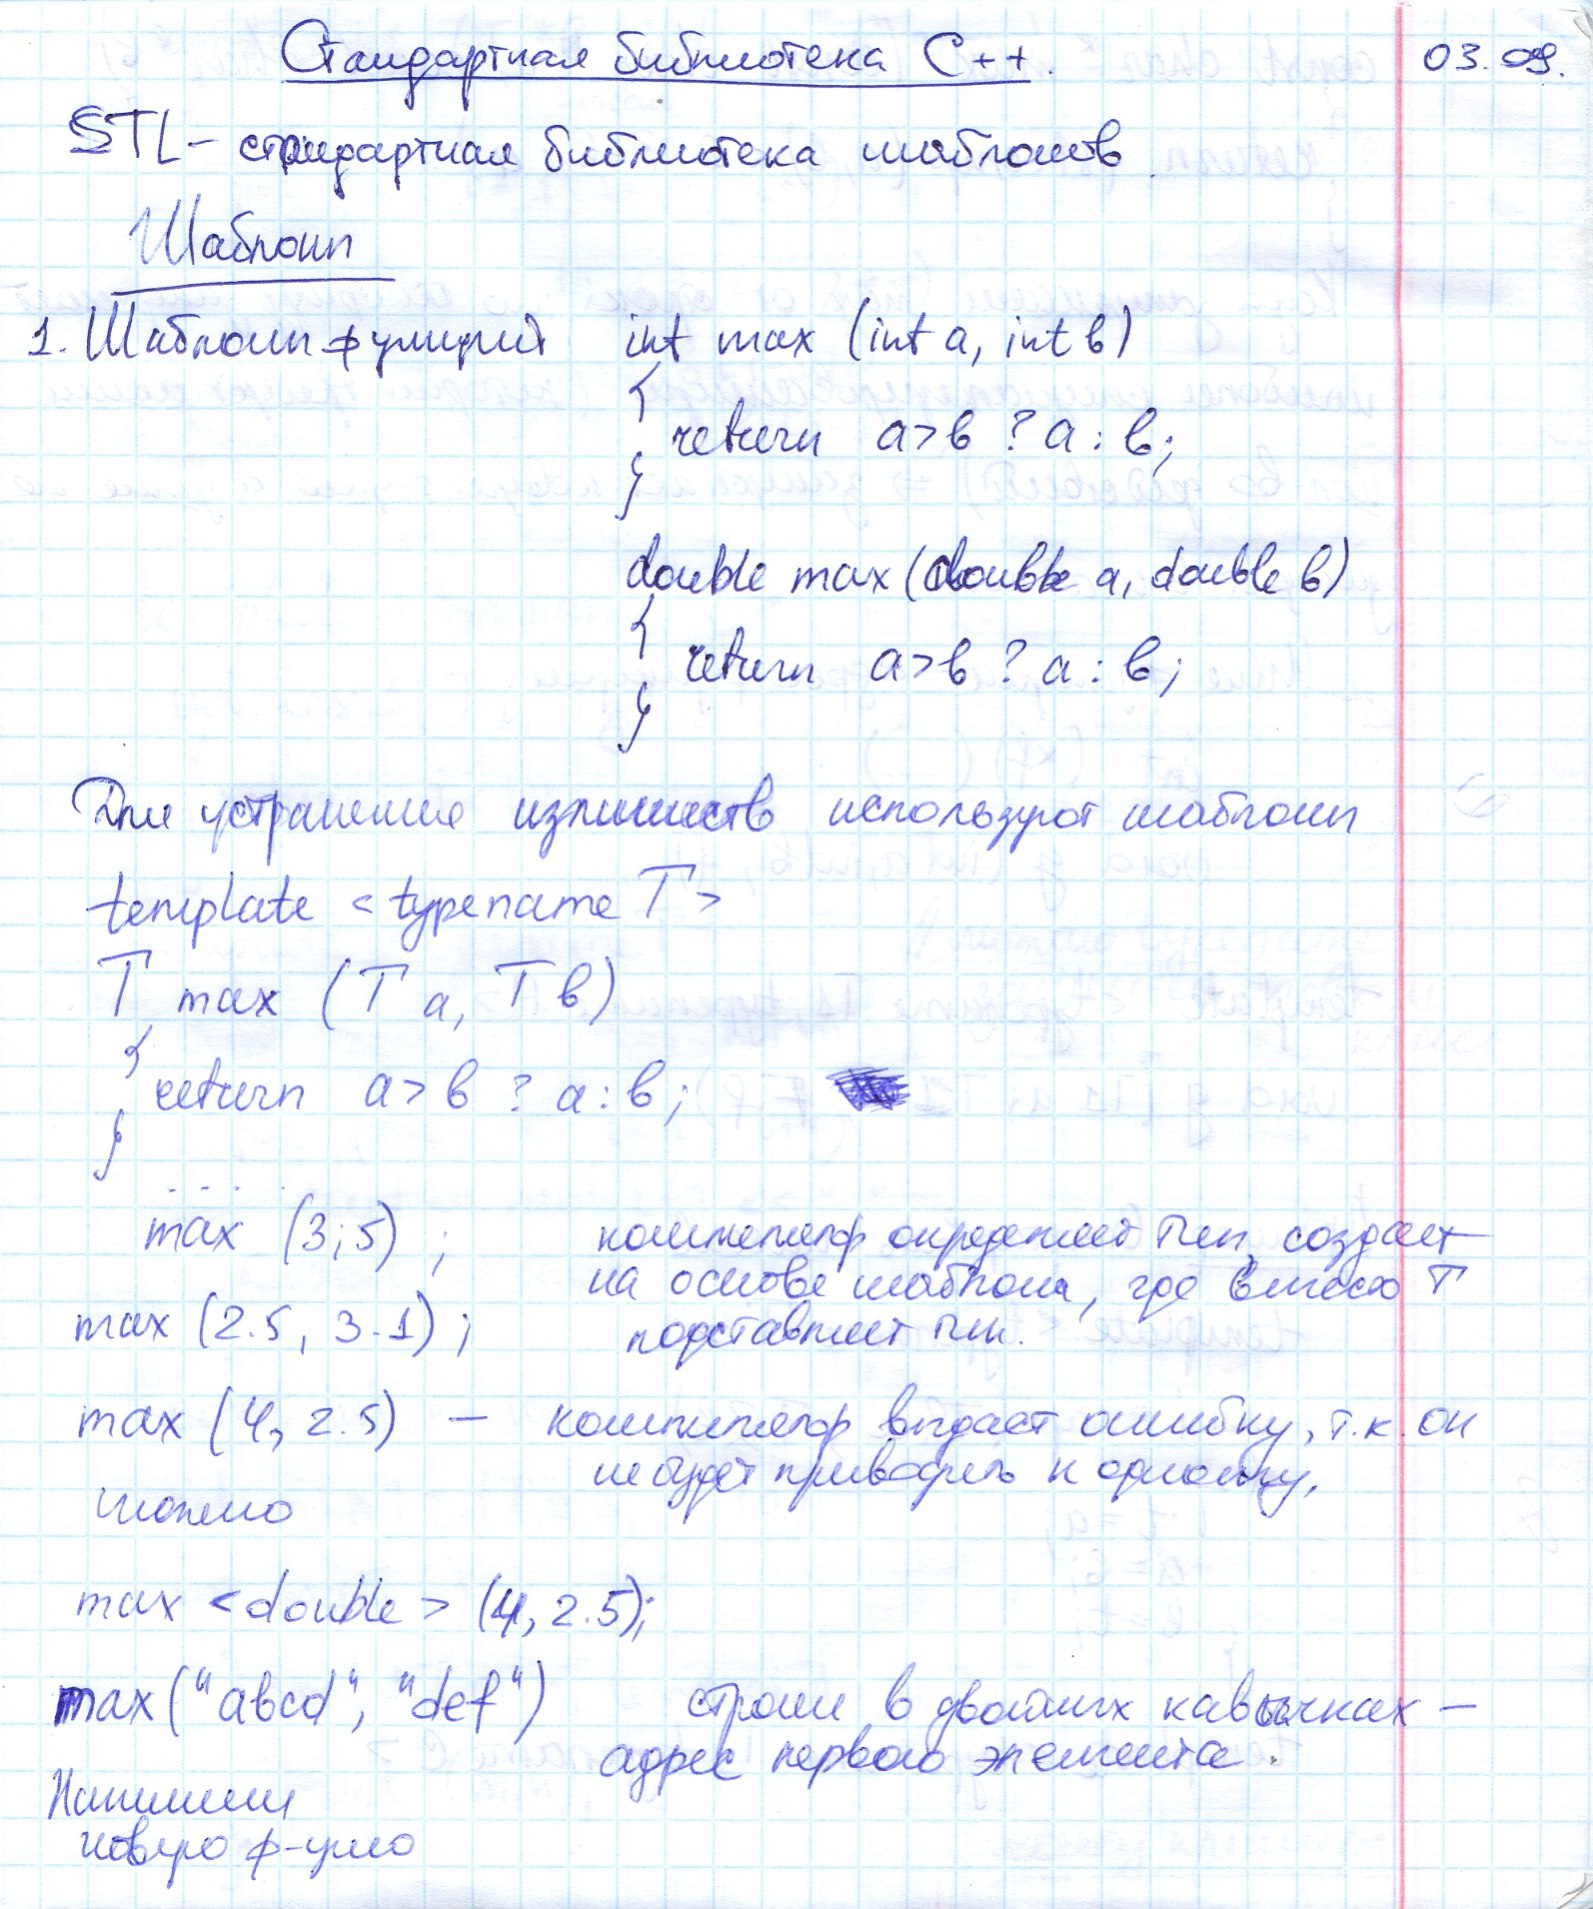 Стандартная библиотека C++.
03.09.
STL – стандартная библиотека шаблонов
Шаблоны
1. Шаблоны функций
int max (int a, int b)
{
return a > b ? a : b;
}
double max (double a, double b)
{
return a > b ? a : b;
}
Для устранения излишеств используют шаблоны
template < typename T >
T max (T a, T b)
{
return a > b ? a : b;
}
. . . .
max (3; 5) ;
компилятор определяет тип, создает
на основе шаблона, где вместо T
max (2.5, 3.1) ;
подставляет тип.
max (4, 2.5) — компилятор выдает ошибку, т.к. он
не будет приводить к одному,
можно
max < double > (4, 2.5);
max ("abcd", "def")
строки в двойных кавычках –
адрес первого элемента.
Напишем
новую ф-цию